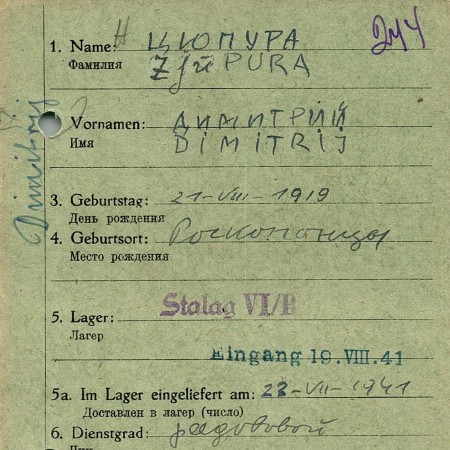 244
1. Name: ЦЮПУРА
Фамилия ZjuPURA
Vornamen: ДИМИТРИЙ
Имя DIMITRIJ
Dimitrij
3. Geburtstag: 21-VIII-1919
День рождения
4. Geburtsort:
Место рождения
5. Lager: Stalag VI/B
Лагер
Eingang 19.VIII.41
5a. Im Lager eingeliefert am: 23-VII-1941
Доставлен в лагер (число)
6. Dienstgrad: рядовой